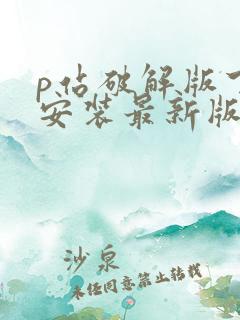 p站破解版
安装最新版
沙泉
未经同意禁止转载